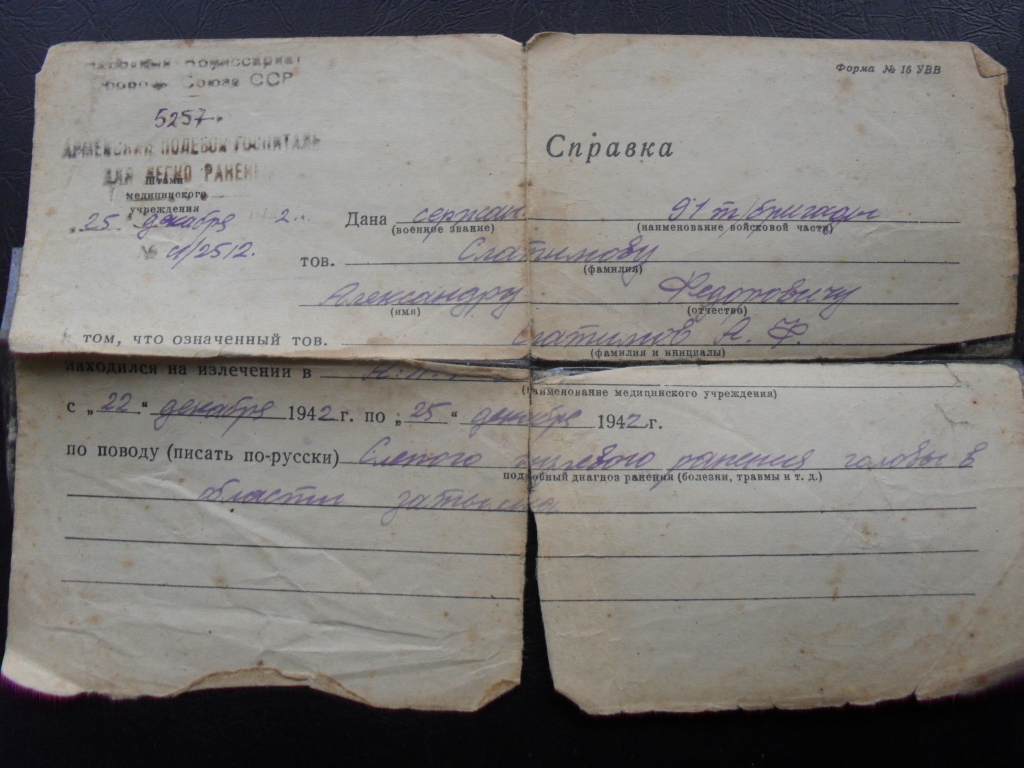 Народный Комиссариат
Обороны Союза ССР
Форма № 16 УВВ
5257.
АРМЕЙСКИЙ ПОЛЕВОЙ ГОСПИТАЛЬ
ДЛЯ ЛЕГКО РАНЕН
Справка
Штамп
медицинского
учреждения
„25" декабря 2.
№ 4/2512.
Дана сержан. 91 т/бригады
(военное звание) (наименование войсковой части)
тов. Слатимову
(фамилия)
Александру Федоровичу
(имя) (отчество)
том, что означенный тов. Слатимов А. Ф.
(фамилия и инициалы)
находился на излечении в
(наименование медицинского учреждения)
с „22" декабря 1942 г. по „25" декабря 1942 г.
по поводу (писать по-русски) Слепого пулевого ранения головы в
подробный диагноз ранения (болезки, травмы и т. д.)
области затылка